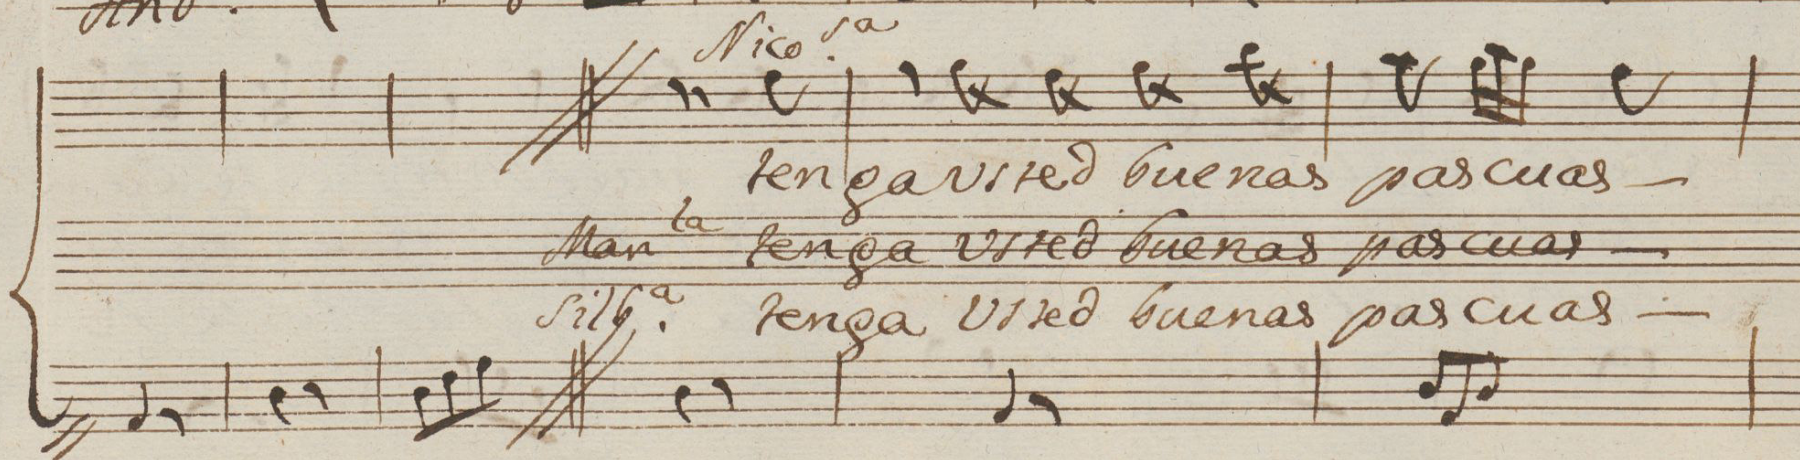 Nico.sa
tenga usted buenas pascuas —
Man.la tenga usted buenas pascuas —
silb.a tenga usted buenas pascuas —